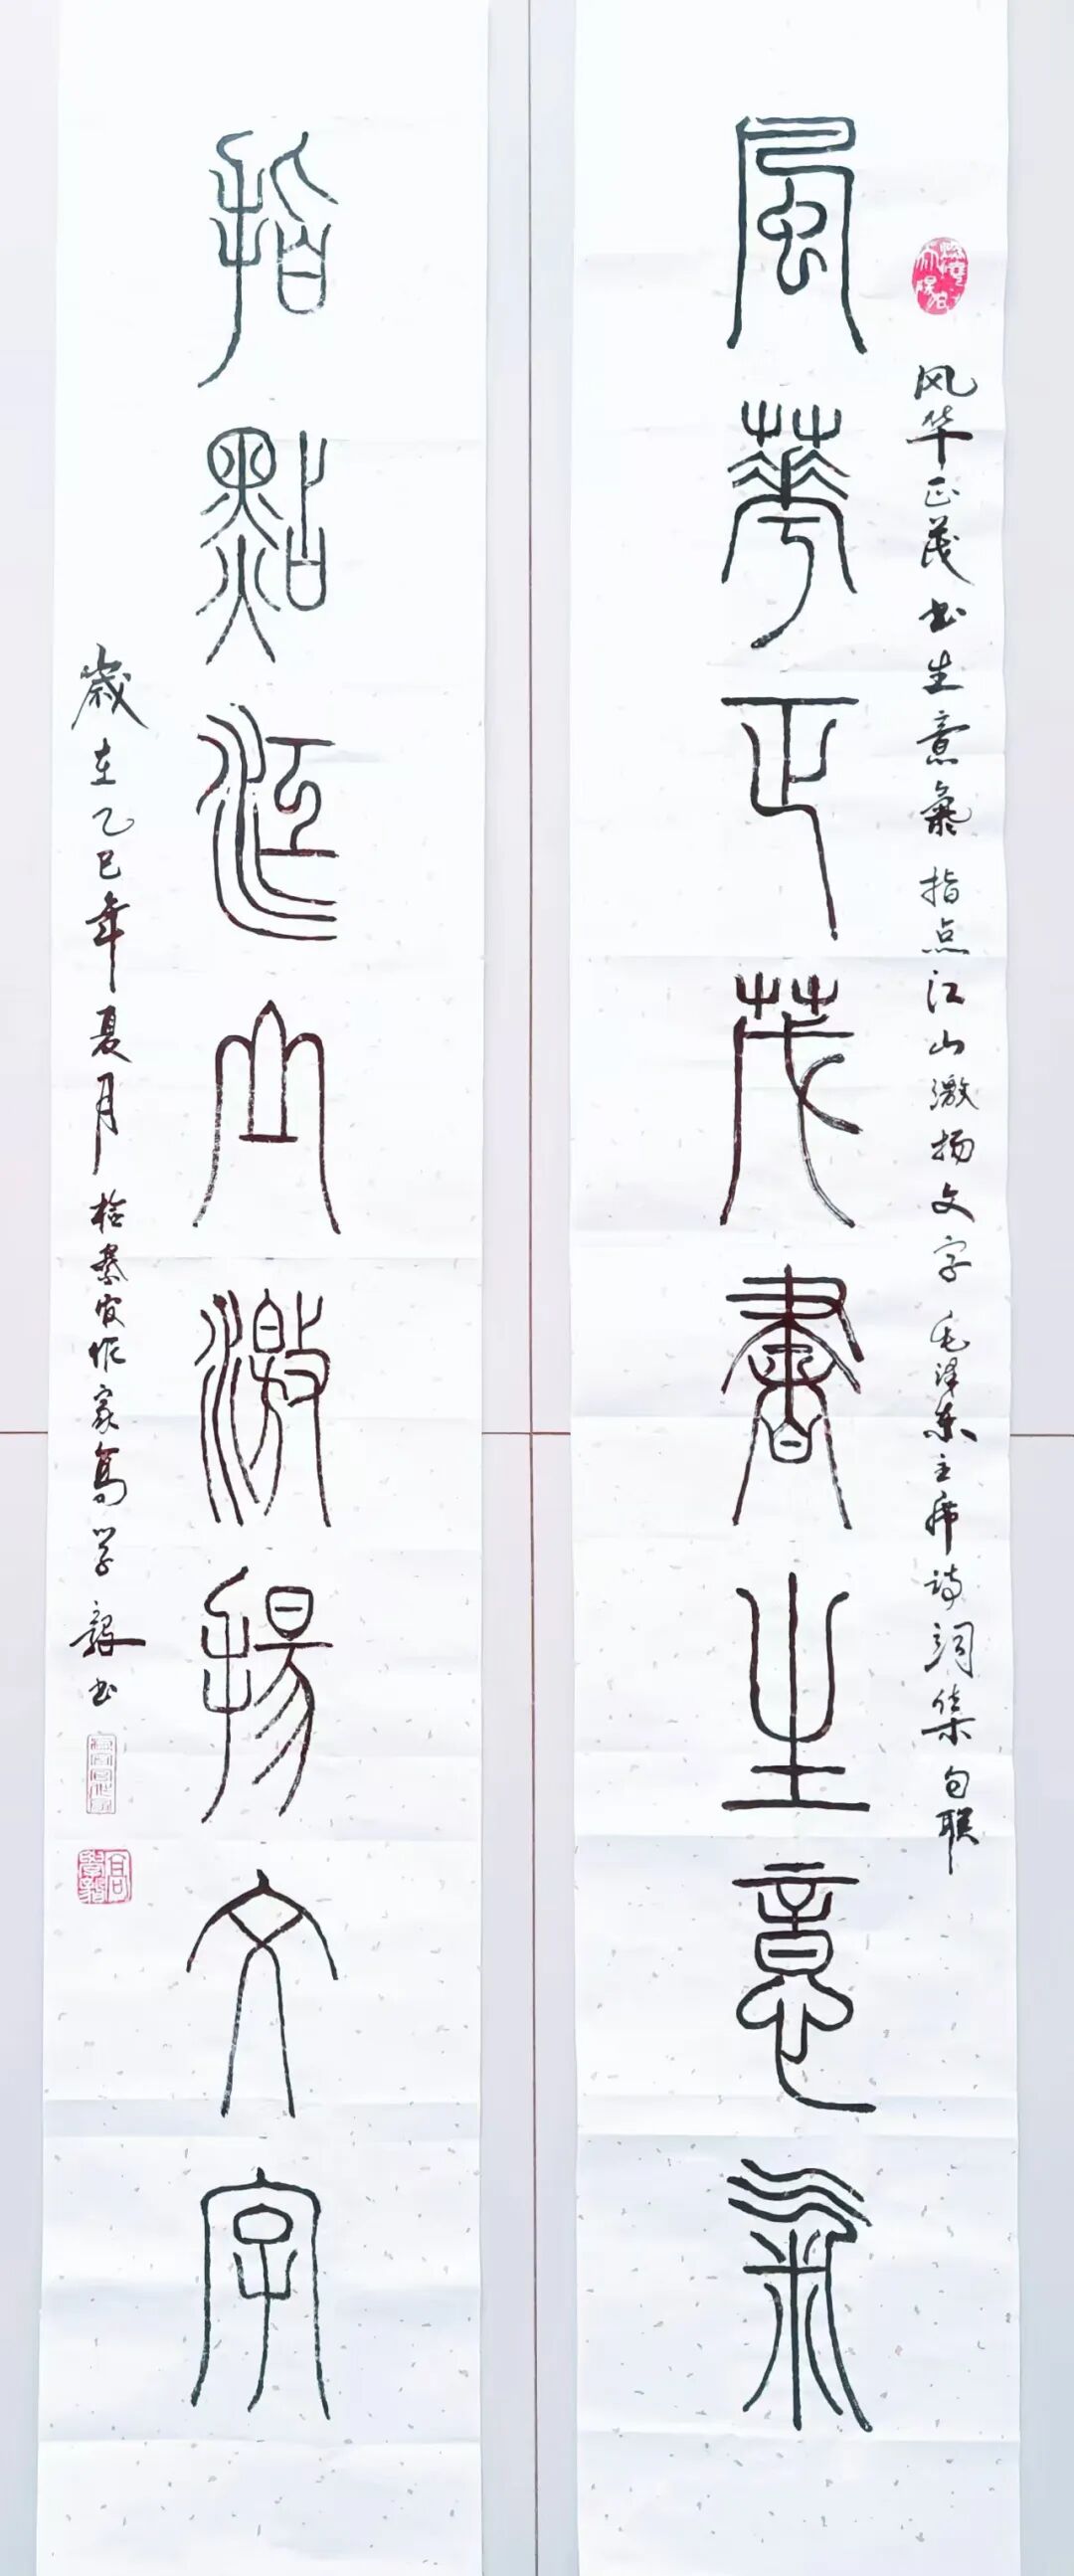 風華正茂書生意氣
风华正茂书生意氣 指点江山激扬文字 毛泽东主席诗词集句联
指點江山激揚文字
歲在乙巳年夏月 於秦安作家 高学毅书